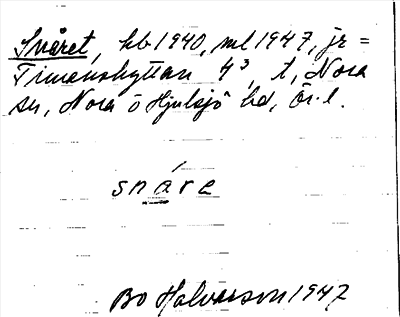 Svåret, hb 1940, ml 1947, jr =
Timanshyttan 4³, t, Nora
sn, Nora o Hjulsjö bd, Ör. l.
snárα
Bo Halvarson 1947